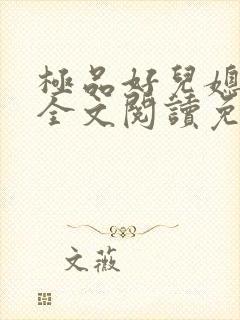 極品好兒媳
全文閱讀免
文薇